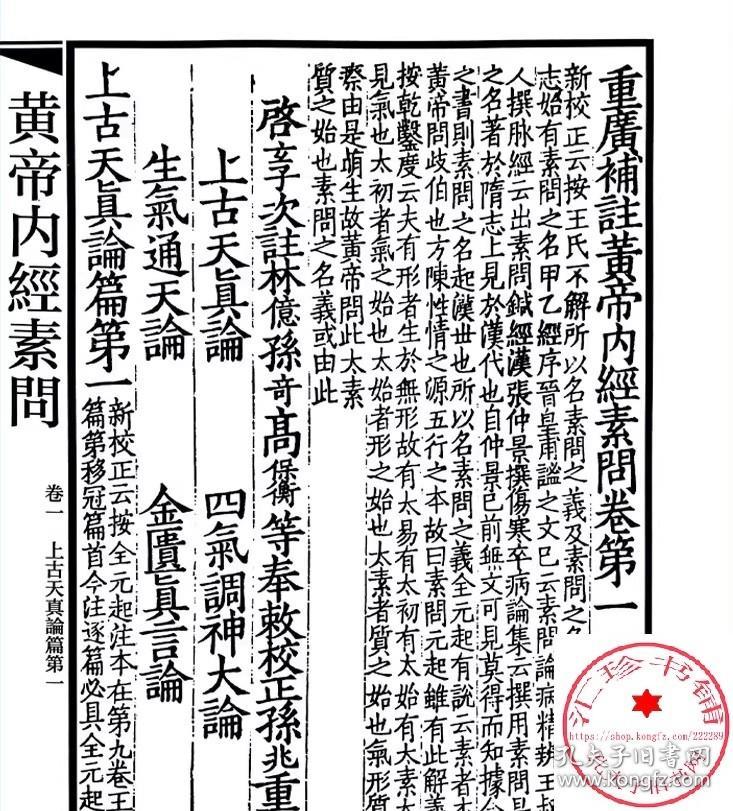 重廣補註黃帝內經素問卷第一
新校正云按王氏不解所以名素問之義及素問之
志始有素問之名甲乙經序晉皇甫謐之文已云素問論病精辨王
人撰脉經云出素問鍼經漢張仲景撰傷寒卒病論集云撰用素問是
之名著於隋志上見於漢代也自仲景已前無文可見莫得而知據今
之書則素問之名起漢世也所以名素問之義全元起有說云素者本
黃帝問歧伯也方陳性情之源五行之本故曰素問元起雖有此解義
按乾鑿度云夫有形者生於無形故有太易有太初有太始有太素太
見氣也太初者氣之始也太始者形之始也太素者質之始也氣形質
瘵由是萌生故黃帝問此太素
質之始也素問之名義或由此
啓玄子次註林億孫奇高保衡等奉敕校正孫兆重
上古天眞論 四氣調神大論
生氣通天論 金匱眞言論
上古天眞論篇第一
新校正云按全元起注本在第九卷王
篇第移冠篇首今注逐篇必具全元起
黃帝內經素問
卷一 上古天真論篇第一
汇珍书铺
https://shop.kongfz.com/222289
孔夫子旧书网
www.kongfz.com